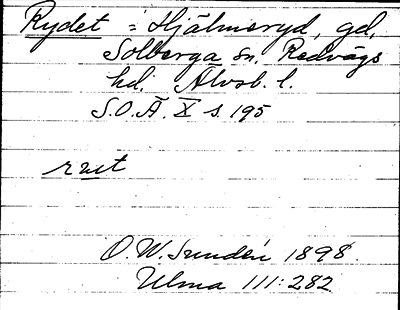 Rydet = Hjälmeryd, gd,
Solberga sn. Redvägs
hd. Älvsb. l.
S.O.Ä. X s. 195
O.W. Sundén 1898
Ulma 111:282